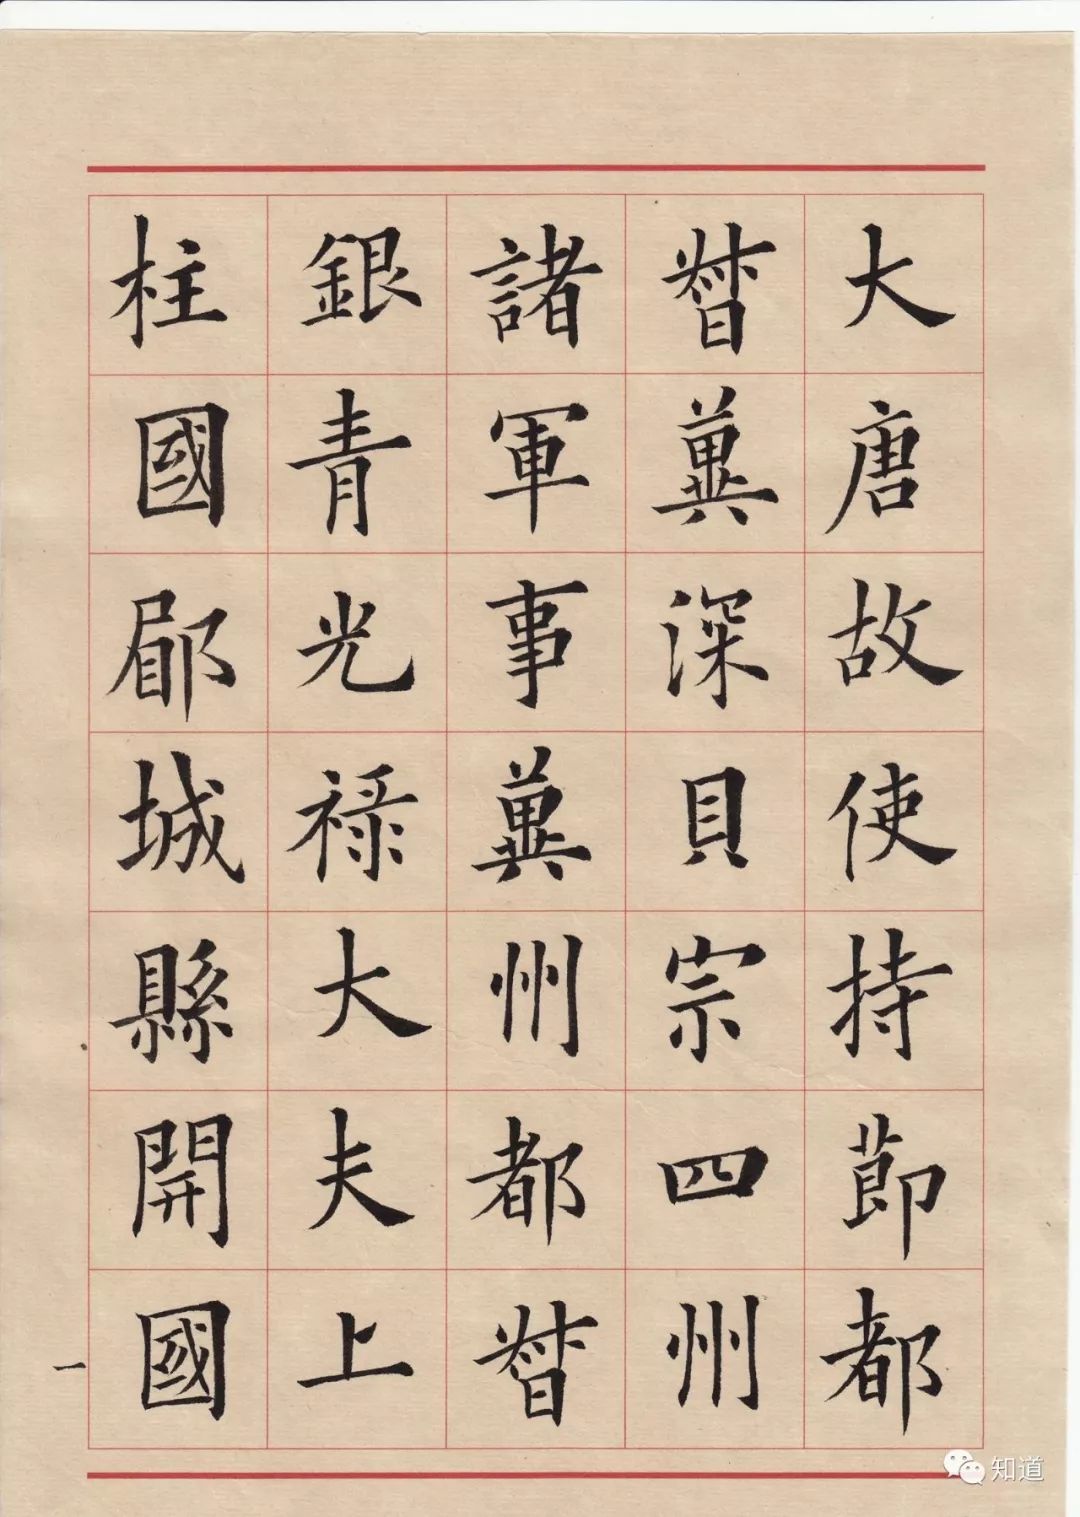 大唐故使持節都
督冀深貝宗四州
諸軍事冀州都督
銀青光祿大夫上
柱國郿城縣開國
一
知道